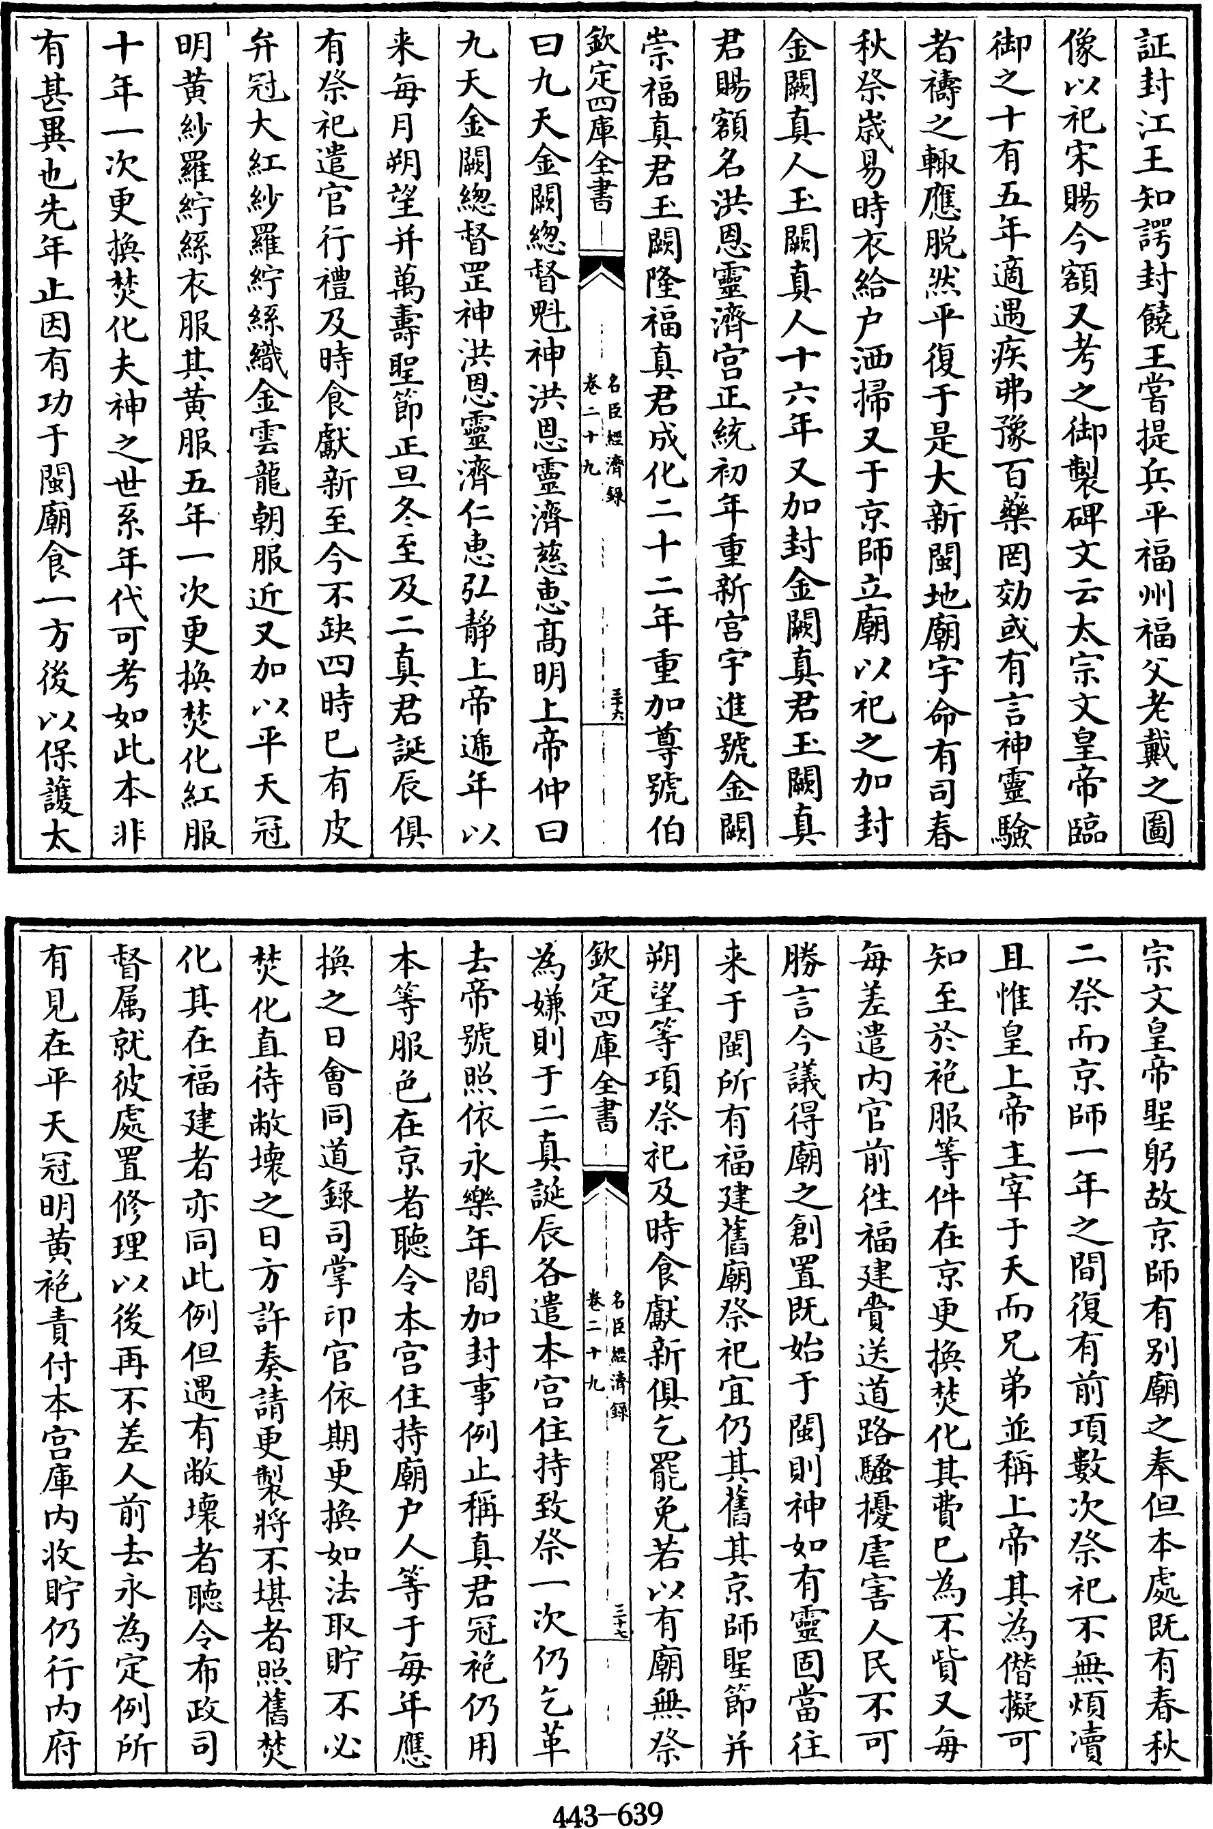 証封江王知諤封饒王嘗提兵平福州福父老戴之圖
像以祀宋賜今額又考之御製碑文云太宗文皇帝臨
御之十有五年適遇疾弗豫百藥罔効或有言神靈驗
者禱之輙應脱然平復于是大新閩地廟宇命有司春
秋祭歲易時衣給户洒掃又于京師立廟以祀之加封
金闕真人玉闕真人十六年又加封金闕真君玉闕真
君賜額名洪恩靈濟宫正統初年重新宫宇進號金闕
崇福真君玉闕隆福真君成化二十二年重加尊號伯
欽定四庫全書
名臣經濟録
卷二十九
三十六
曰九天金闕總督魁神洪恩靈濟慈惠高明上帝仲曰
九天金闕總督罡神洪恩靈濟仁惠弘静上帝遞年以
来每月朔望并萬壽聖節正旦冬至及二真君誕辰俱
有祭祀遣官行禮及時食獻新至今不缺四時已有皮
弁冠大紅紗羅紵絲織金雲龍朝服近又加以平天冠
明黄紗羅紵絲衣服其黄服五年一次更换焚化紅服
十年一次更换焚化夫神之世系年代可考如此本非
有甚異也先年止因有功于閩廟食一方後以保護太
宗文皇帝聖躬故京師有别廟之奉但本處既有春秋
二祭而京師一年之間復有前項數次祭祀不無煩瀆
且惟皇上帝主宰于天而兄弟並稱上帝其為僭擬可
知至於袍服等件在京更换焚化其費已為不貲又每
每差遣内官前往福建賫送道路騷擾虐害人民不可
勝言今議得廟之創置既始于閩則神如有靈固當往
来于閩所有福建舊廟祭祀宜仍其舊其京師聖節并
朔望等項祭祀及時食獻新俱乞罷免若以有廟無祭
欽定四庫全書
名臣經濟録
卷二十九
三十七
為嫌則于二真誕辰各遣本宫住持致祭一次仍乞革
去帝號照依永樂年間加封事例止稱真君冠袍仍用
本等服色在京者聽令本宫住持廟户人等于每年應
换之日會同道録司掌印官依期更换如法取貯不必
焚化直待敝壞之日方許奏請更製将不堪者照舊焚
化其在福建者亦同此例但遇有敝壞者聽令布政司
督属就彼處置修理以後再不差人前去永為定例所
有見在平天冠明黄袍責付本宫庫内收貯仍行内府
443-639